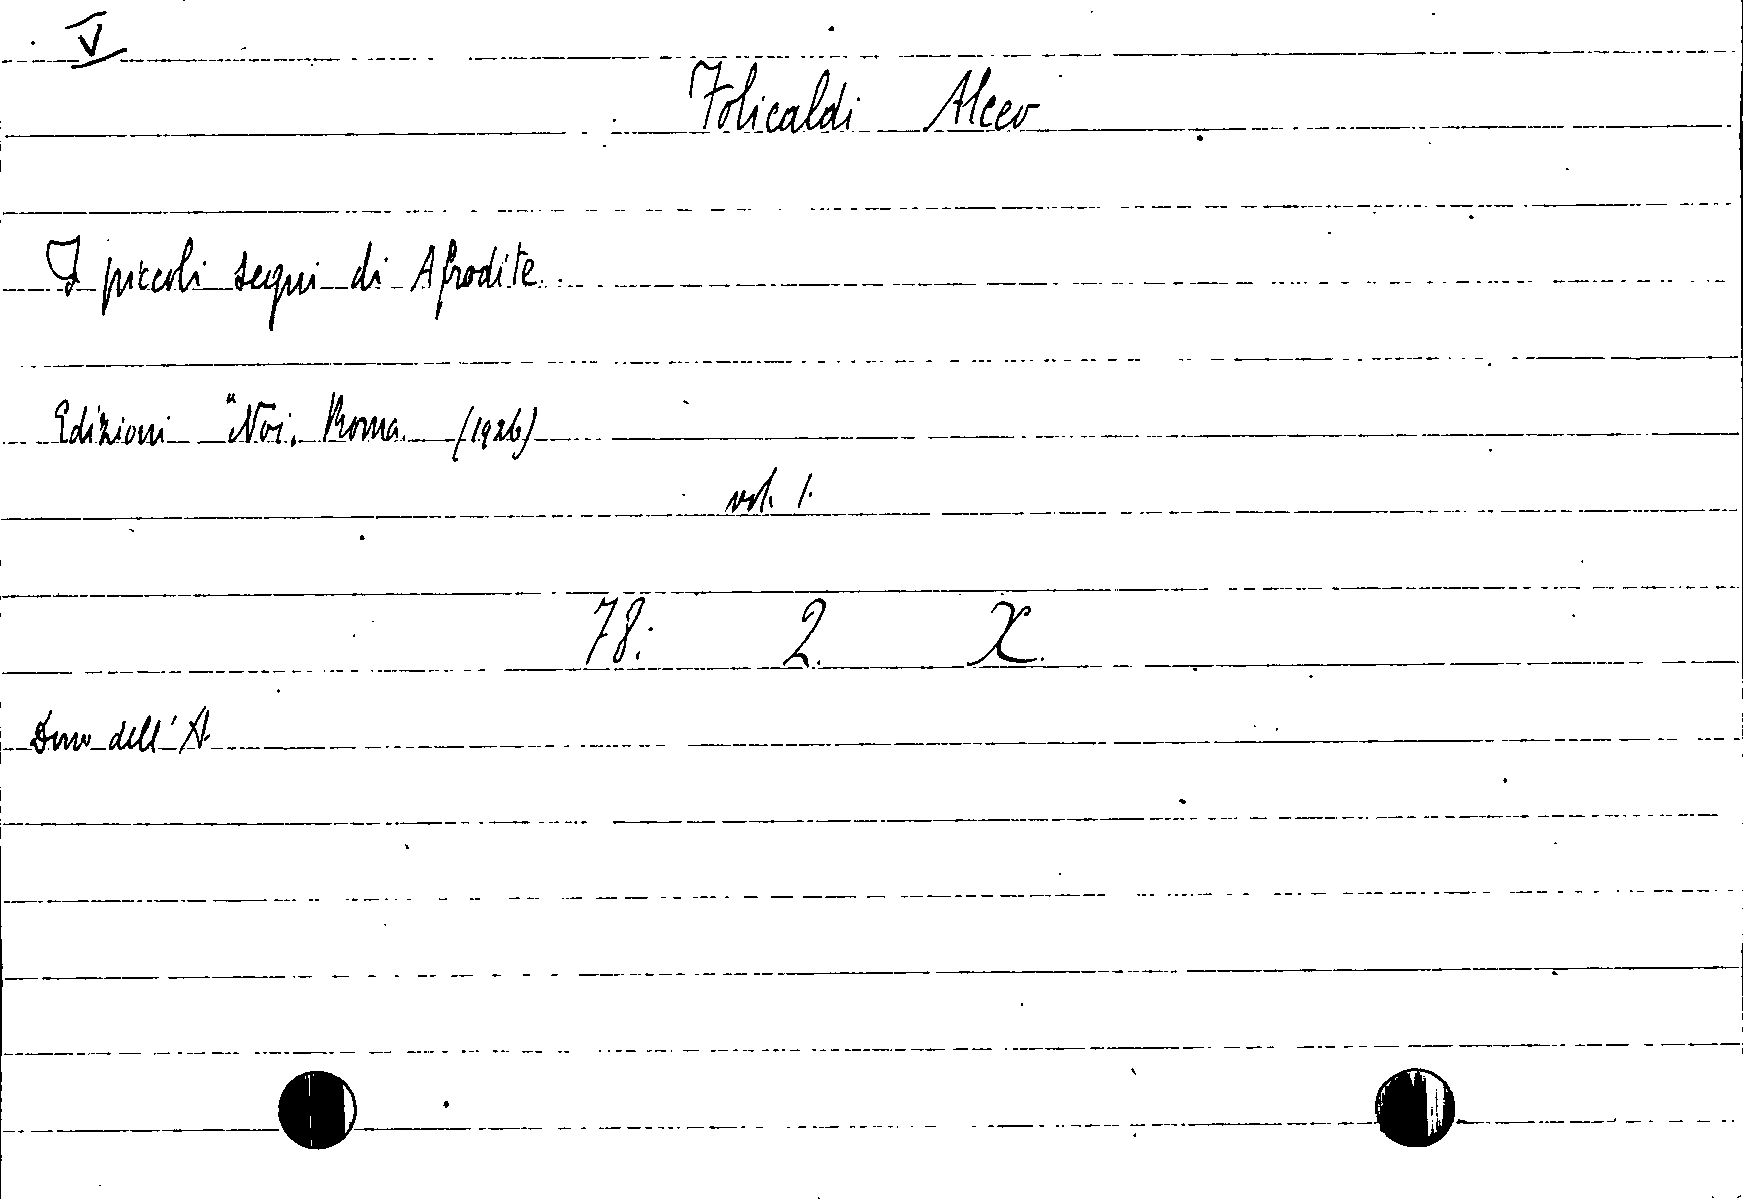 V
Folicaldi Alceo
I piccoli segni di Afrodite.
Edizioni "Noi„ Roma. (1926)
vol. 1.
78. 2. X.
Dono dell'A.